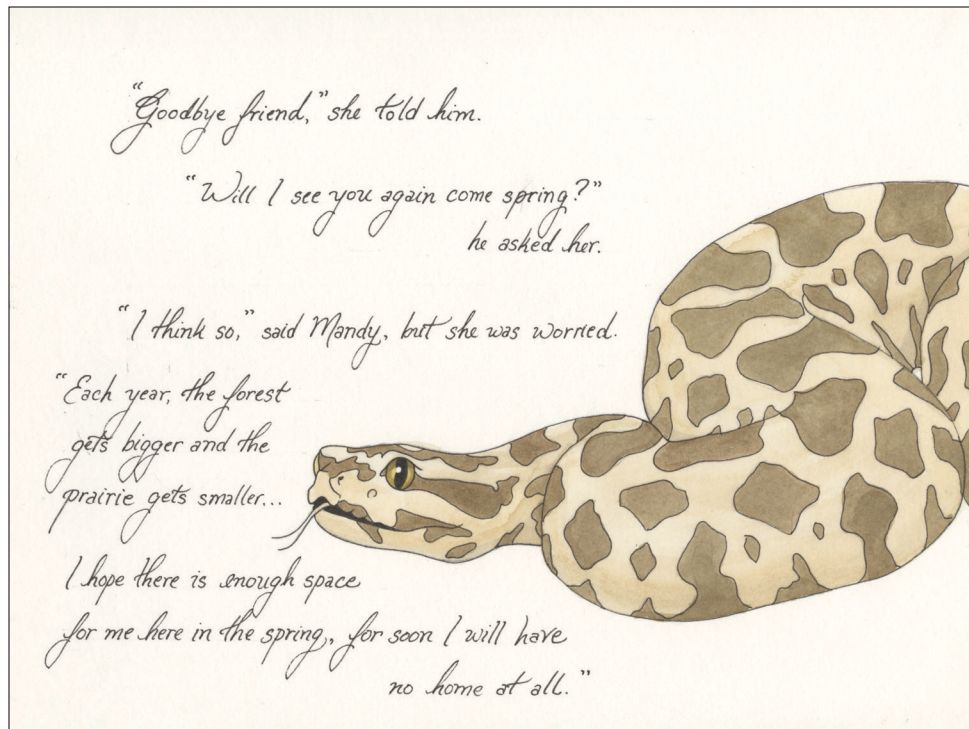 "Goodbye friend," she told him.
"Will I see you again come spring?"
he asked her.
"I think so," said Mandy, but she was worried.
"Each year, the forest
gets bigger and the
prairie gets smaller...
I hope there is enough space
for me here in the spring, for soon I will have
no home at all."